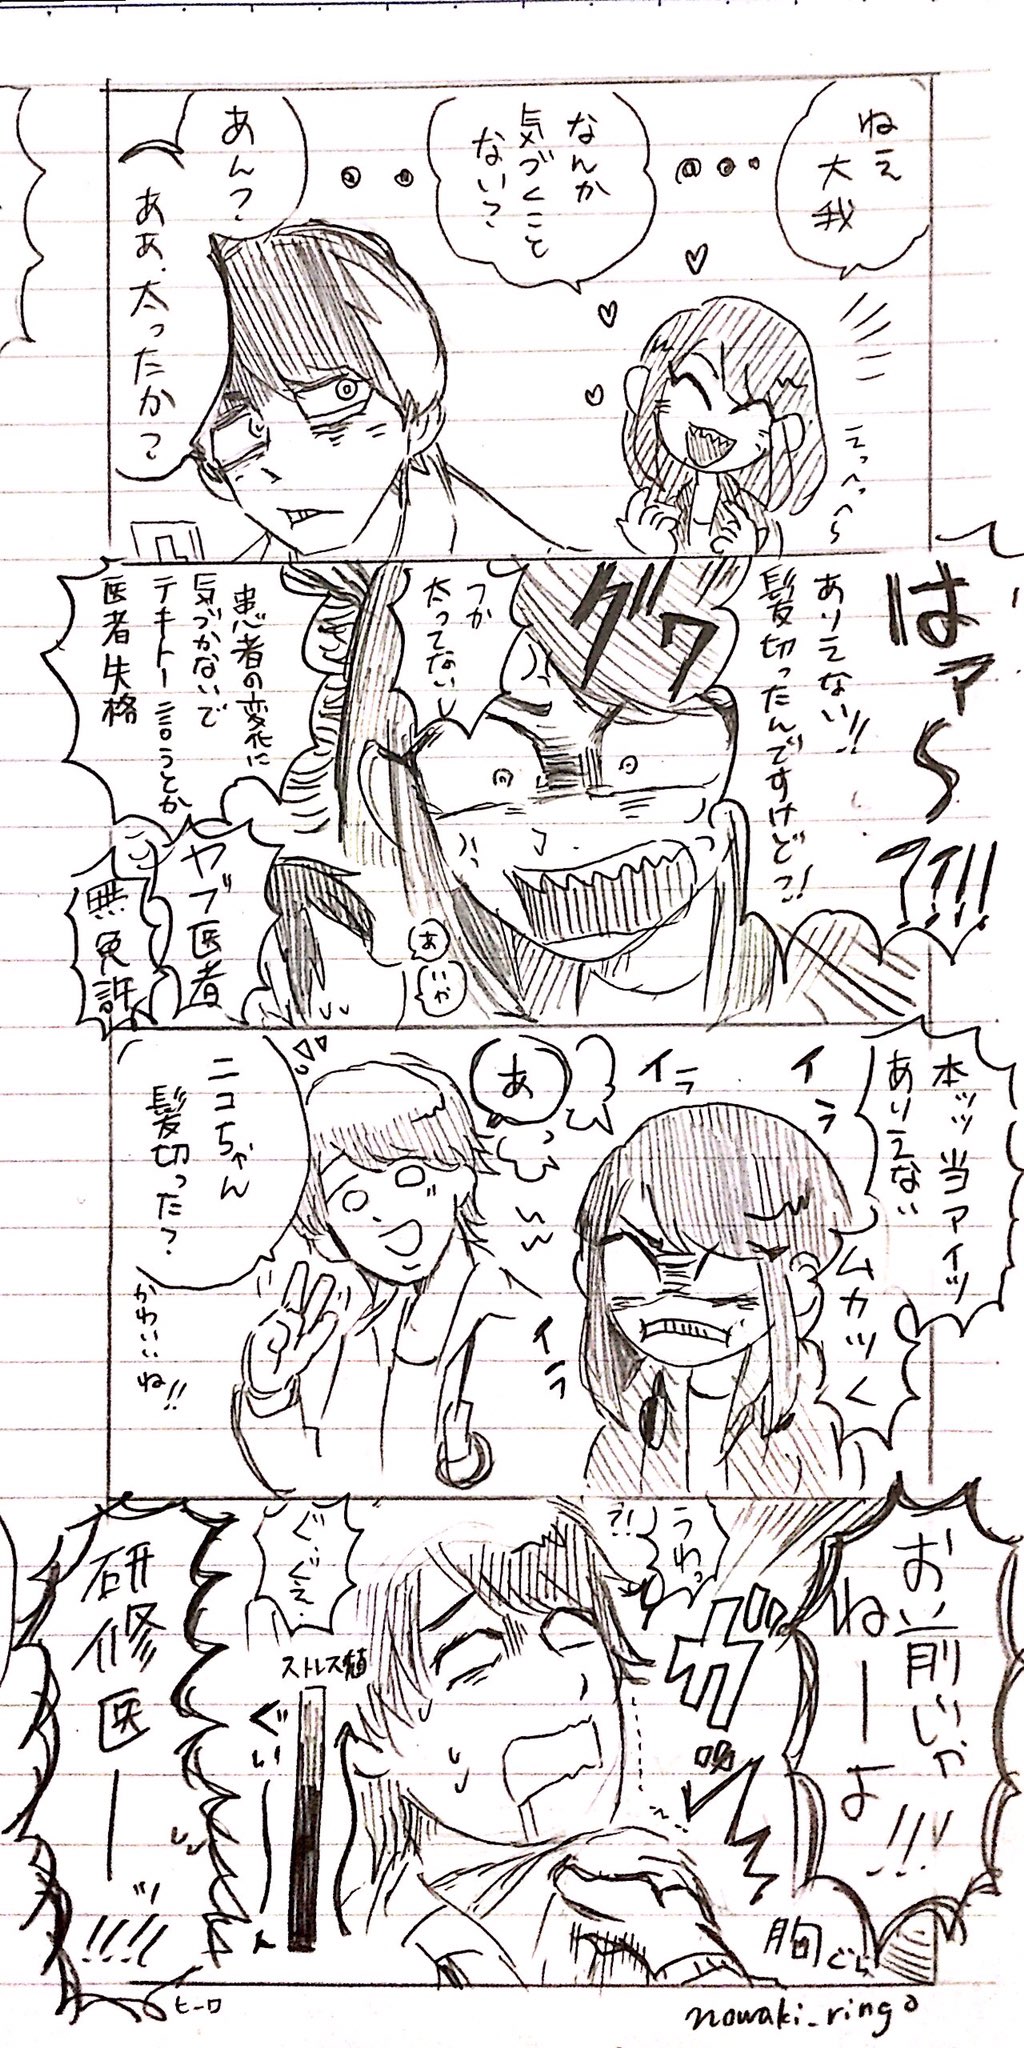 ねえ
大我
なんか
気づくこと
ない?
あん?
ああ、太ったか?
えっへへ〜
はァ〜!?!!
ありえない!!
髪切ったんですけどっ?!
グワ
つか
太ってないし
患者の変化に
気づかないで
テキトー言うとか
医者失格
ヤブ医者
無免許
あ
いや
本ッッ当アイツ
ありえない
ムカつく
イラ
イラ
イラ
あっ
ニコちゃん
髪切った?
かわいいね!!
お前じゃ
ねーよ!!!
うわっ
?!
ガッ
胸ぐら
ぐ、ぐえ
ストレス値
ぐいーん
研修医ーッ!!!!
ヒーロ
nowaki_ringo